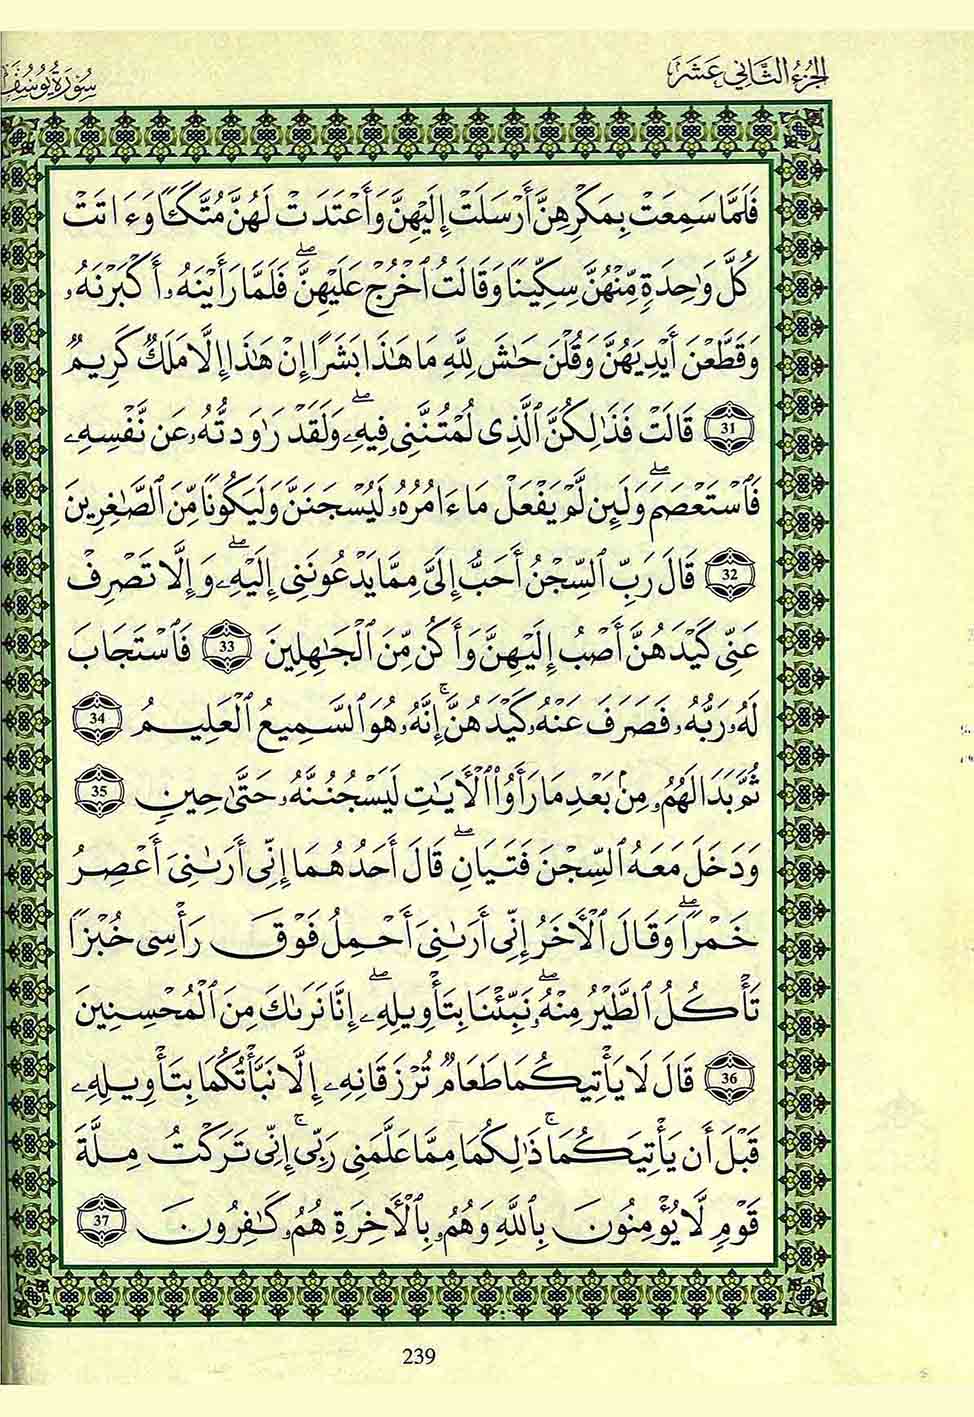 الجزء الثاني عشر
سورة يوسف
فَلَمَّا سَمِعَتْ بِمَكْرِهِنَّ أَرْسَلَتْ إِلَيْهِنَّ وَأَعْتَدَتْ لَهُنَّ مُتَّكَـًٔا وَءَاتَتْ
كُلَّ وَٰحِدَةٍ مِّنْهُنَّ سِكِّينًا وَقَالَتُ ٱخْرُجْ عَلَيْهِنَّ ۖ فَلَمَّا رَأَيْنَهُۥ أَكْبَرْنَهُۥ
وَقَطَّعْنَ أَيْدِيَهُنَّ وَقُلْنَ حَٰشَ لِلَّهِ مَا هَٰذَا بَشَرًا إِنْ هَٰذَا إِلَّا مَلَكٌ كَرِيمٌ
31 قَالَتْ فَذَٰلِكُنَّ ٱلَّذِى لُمْتُنَّنِى فِيهِۦ ۖ وَلَقَدْ رَٰوَدتُّهُۥ عَن نَّفْسِهِۦ
فَٱسْتَعْصَمَ ۖ وَلَئِن لَّمْ يَفْعَلْ مَا ءَامُرُهُۥ لَيُسْجَنَنَّ وَلَيَكُونًا مِّنَ ٱلصَّٰغِرِينَ
32 قَالَ رَبِّ ٱلسِّجْنُ أَحَبُّ إِلَىَّ مِمَّا يَدْعُونَنِى إِلَيْهِۦ ۖ وَإِلَّا تَصْرِفْ
عَنِّى كَيْدَهُنَّ أَصْبُ إِلَيْهِنَّ وَأَكُن مِّنَ ٱلْجَٰهِلِينَ 33 فَٱسْتَجَابَ
لَهُۥ رَبُّهُۥ فَصَرَفَ عَنْهُۥ كَيْدَهُنَّ ۚ إِنَّهُۥ هُوَ ٱلسَّمِيعُ ٱلْعَلِيمُ 34
ثُمَّ بَدَا لَهُمُۥ مِنۢ بَعْدِ مَا رَأَوُا۟ ٱلْأَيَٰتِ لَيَسْجُنُنَّهُۥ حَتَّىٰ حِينٍ 35
وَدَخَلَ مَعَهُ ٱلسِّجْنَ فَتَيَانِ ۖ قَالَ أَحَدُهُمَا إِنِّى أَرَىٰنِىَ أَعْصِرُ
خَمْرًا ۖ وَقَالَ ٱلْأَخَرُ إِنِّى أَرَىٰنِىَ أَحْمِلُ فَوْقَ رَأْسِى خُبْزًا
تَأْكُلُ ٱلطَّيْرُ مِنْهُۥ ۖ نَبِّئْنَا بِتَأْوِيلِهِۦ ۖ إِنَّا نَرَىٰكَ مِنَ ٱلْمُحْسِنِينَ
36 قَالَ لَا يَأْتِيكُمَا طَعَامٌ تُرْزَقَانِهِۦ إِلَّا نَبَّأْتُكُمَا بِتَأْوِيلِهِۦ
قَبْلَ أَن يَأْتِيَكُمَا ۚ ذَٰلِكُمَا مِمَّا عَلَّمَنِى رَبِّى ۚ إِنِّى تَرَكْتُ مِلَّةَ
قَوْمٍ لَّا يُؤْمِنُونَ بِٱللَّهِ وَهُمُۥ بِٱلْأَخِرَةِ هُمُۥ كَٰفِرُونَ 37
239